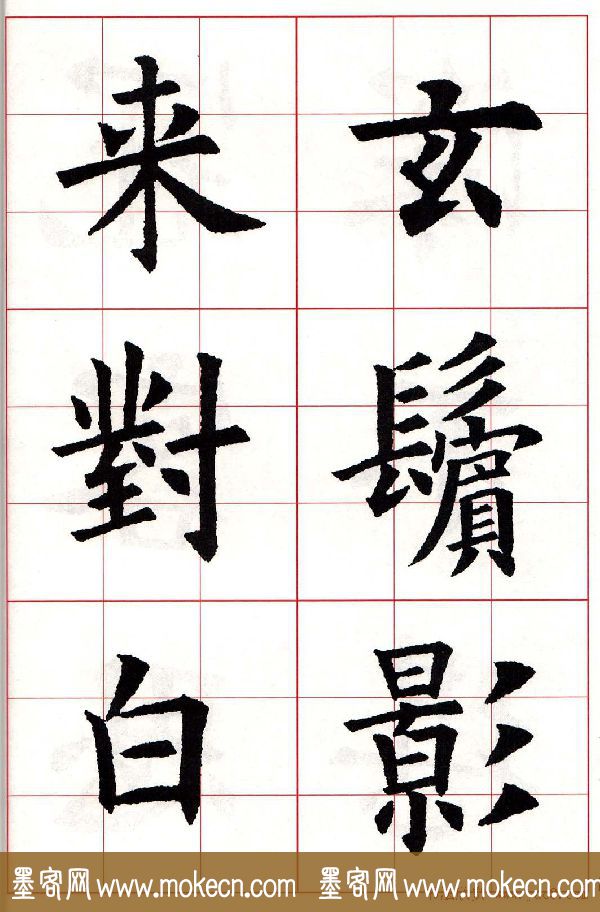 玄鬢影
来對白
墨客网 www.mokecn.com 墨客网 www.mokecn.com